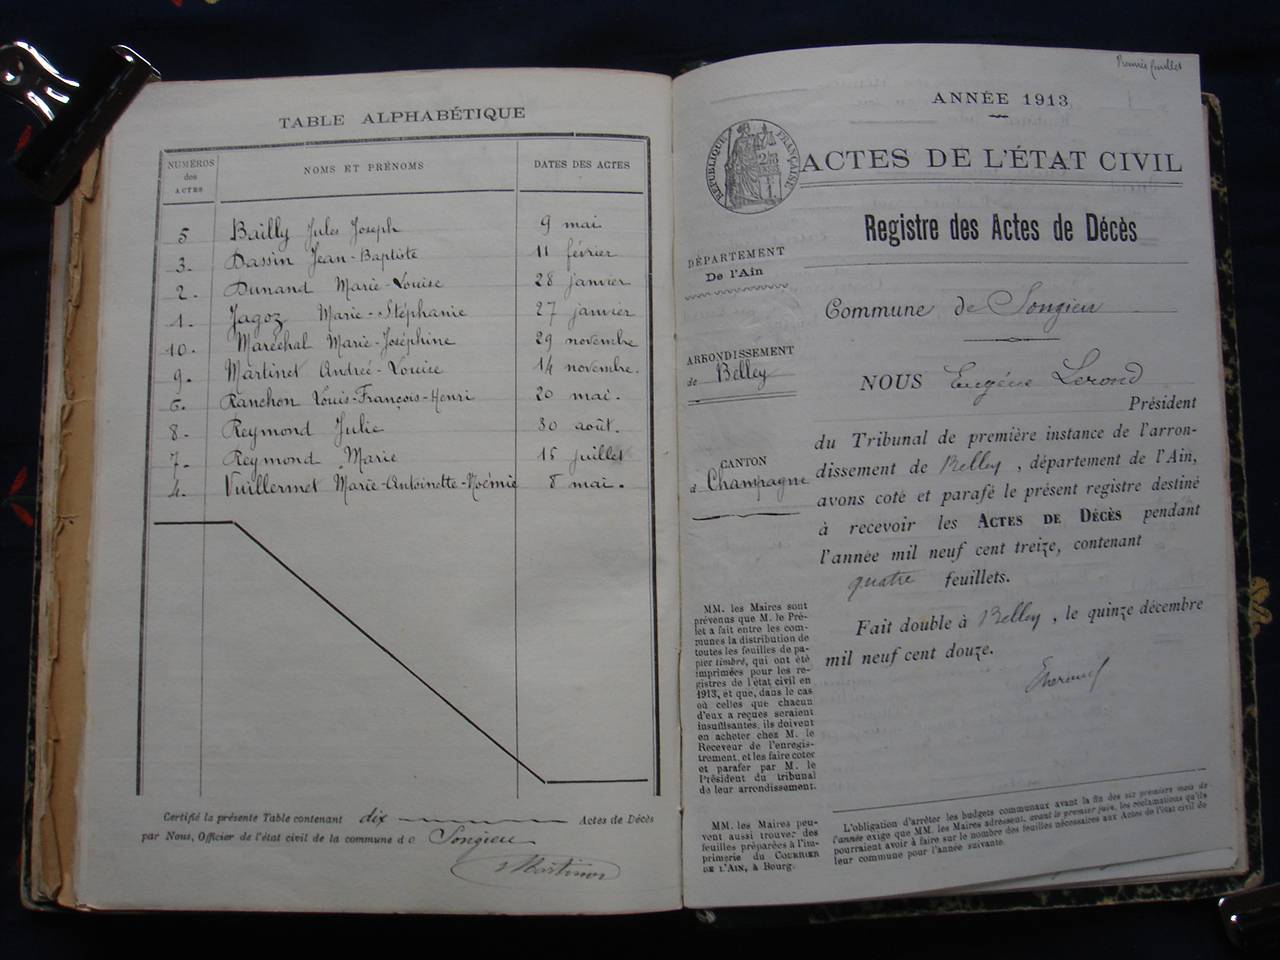 TABLE ALPHABÉTIQUE
NUMÉROS des ACTES NOMS ET PRÉNOMS DATES DES ACTES
5 Bailly Jules Joseph 9 mai
3. Dassin Jean-Baptiste 11 février
2. Dunand Marie-Louise 28 janvier
1. Jagoz Marie-Stéphanie 27 janvier
10. Maréchal Marie-Joséphine 29 novembre
9. Martinet Andrée-Louise 14 novembre.
6. Ranchon Louis-François-Henri 20 mai.
8. Reymond Julie 30 août.
7. Reymond Marie 15 juillet
4. Vuillermet Marie-Antoinette-Noémie 8 mai.
Certifié la présente Table contenant dix Actes de Décès
par Nous, Officier de l'état civil de la commune de Songieu
Premier feuillet
ANNÉE 1913
RÉPUBLIQUE FRANÇAISE
ACTES DE L'ÉTAT CIVIL
Registre des Actes de Décès
DÉPARTEMENT
De l'Ain
Commune de Songieu
ARRONDISSEMENT
de Belley
CANTON
d Champagne
NOUS Eugène Lerond
Président
du Tribunal de première instance de l'arron-
dissement de Belley, département de l'Ain,
avons coté et parafé le présent registre destiné
à recevoir les ACTES DE DÉCÈS pendant
l'année mil neuf cent treize, contenant
quatre feuillets.
Fait double à Belley, le quinze décembre
mil neuf cent douze.
MM. les Maires sont
prévenus que M. le Pré-
fet a fait entre les com-
munes la distribution de
toutes les feuilles de pa-
pier timbré, qui ont été
imprimées pour les re-
gistres de l'état civil en
1913, et que, dans le cas
où celles que chacun
d'eux a reçues seraient
insuffisantes, ils doivent
en acheter chez M. le
Receveur de l'enregis-
trement, et les faire coter
et parafer par M. le
Président du tribunal
de leur arrondissement.
MM. les Maires peu-
vent aussi trouver des
feuilles préparées à l'im-
primerie du COURRIER
DE L'AIN, à Bourg.
L'obligation d'arrêter les budgets communaux avant la fin des six premiers mois de
l'année exige que MM. les Maires adressent, avant le premier juin, les réclamations qu'ils
pourraient avoir à faire sur le nombre des feuilles nécessaires aux Actes de l'état civil de
leur commune pour l'année suivante.